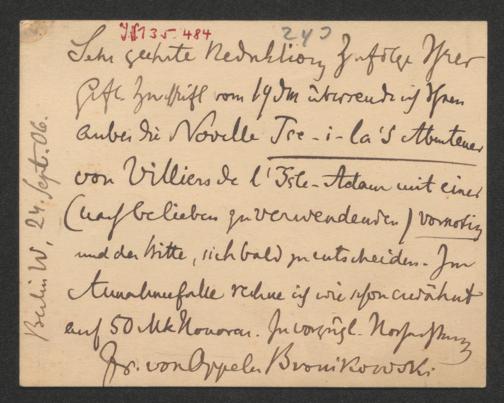 IN 135.484
243
Sehr geehrte Redaktion, Zufolge Ihrer
Gefl. Zuschrift vom 19 dM übersende ich Ihnen
anbei die Novelle Tse-i-la's Abenteuer
von Villiers de l'Isle-Adam mit einer
(nach belieben zu verwendenden) Vornotiz
und der Bitte, sich bald zu entscheiden. Im
Annahmefalle rechne ich wie schon erwähnt
auf 50 Mk Honorar. In vorzügl. Hochachtung
Fr. von Oppeln Bronikowski
Berlin W, 24. Sept. 06.